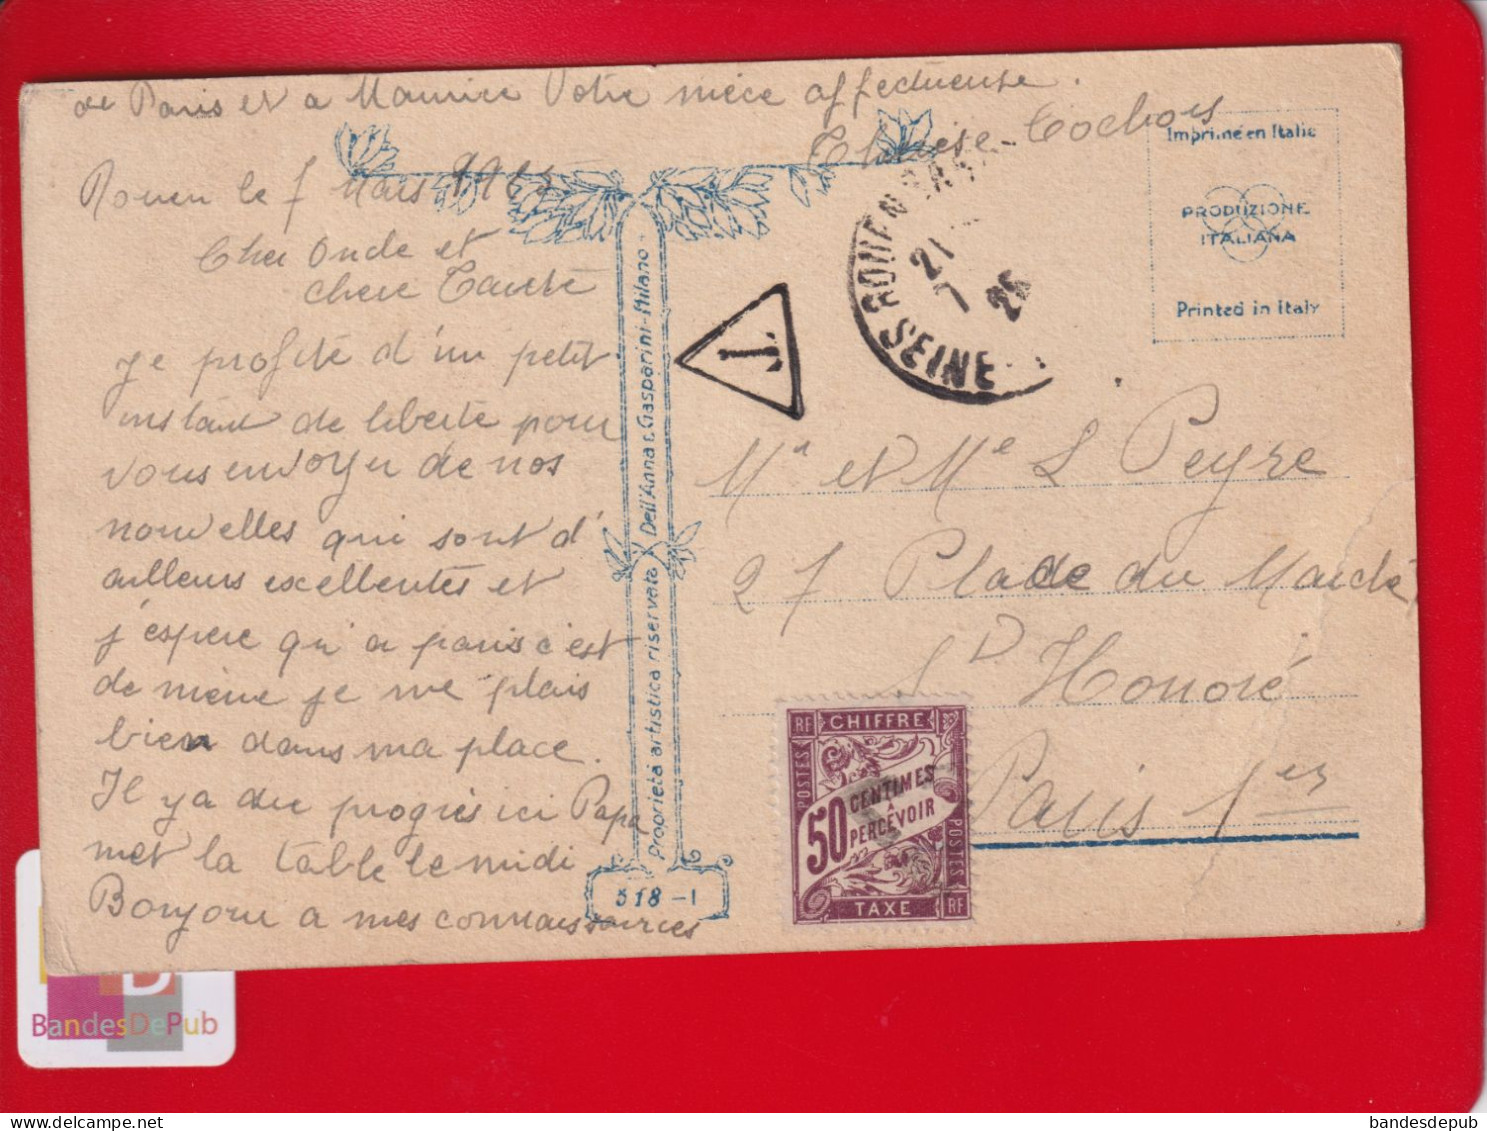 de Paris et a Maurice Votre nièce affectueuse.
Thérèse Cochois
Rouen le 7 Mars
Cher Oncle et
chere Tante
Je profite d'un petit
instant de liberté pour
vous envoyer de nos
nouvelles qui sont d'
ailleurs excellentes et
j'espere qu'a paris c'est
de même je me plais
bien dans ma place.
Il y a du progrès ici Papa
met la table le midi
Bonjour a mes connaissances
Proprietà artistica riservata Dell'Anna e Gasparini-Milano
518-1
T.
ROUEN
SEINE
21
7
25
Imprimé en Italie
PRODUZIONE
ITALIANA
Printed in Italy
Mr et Me L Peyre
27 Place du Marché
St Honoré
Paris 1er
RF CHIFFRE
POSTES
50 CENTIMES
A
PERCEVOIR
POSTES
TAXE RF
BandesDePub
bandesdepub